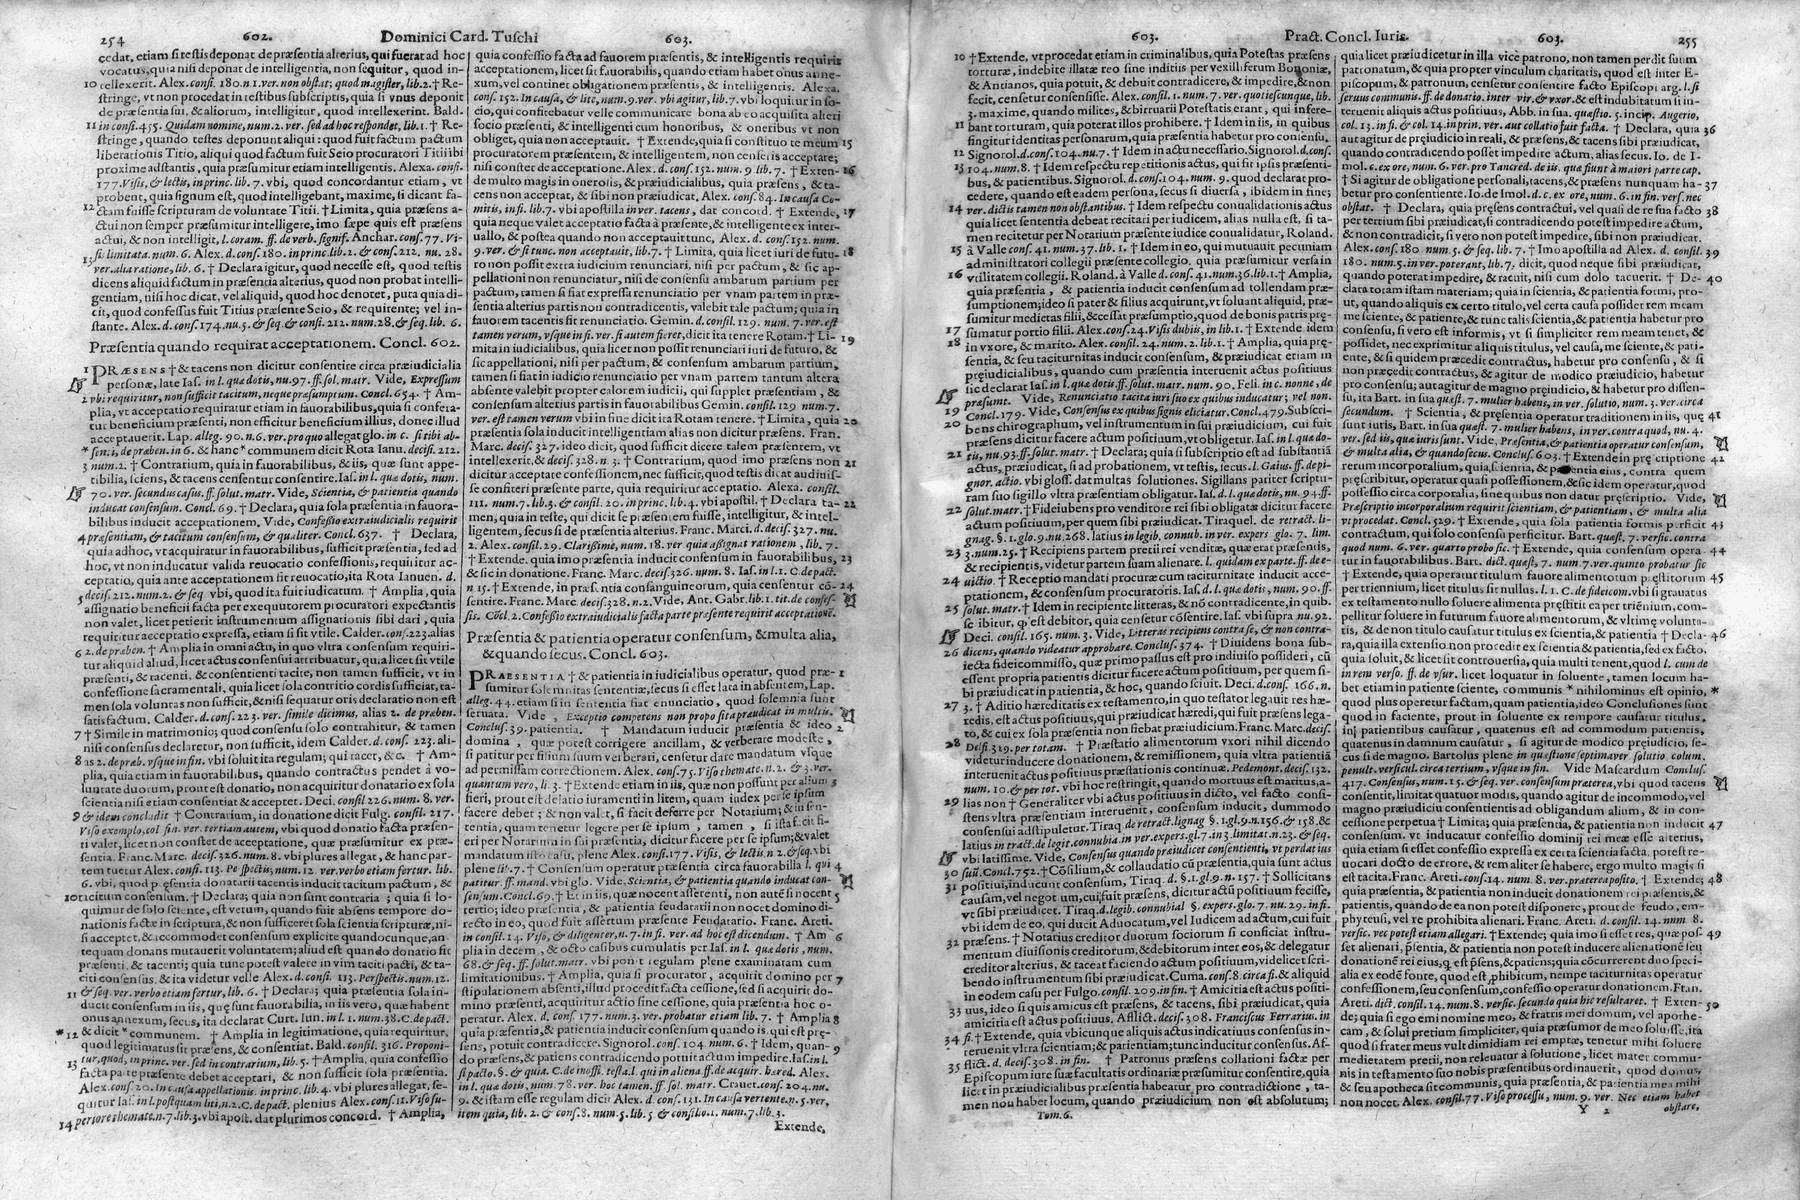 254 602. Dominici Card. Tuschi 603.
cedat, etiam si testis deponat de præsentia alterius, qui fuerat ad hoc
vocatus, quia nisi deponat de intelligentia, non sequitur, quod in-
10 tellexerit. Alex. consi. 180. n 1. ver. non obstat; quod magister, lib. 2. † Re-
stringe, vt non procedat in testibus subscriptis, quia si vnus deponit
de præsentia sui, & aliorum, intelligitur, quod intellexerint. Bald.
11 in consi. 455. Quidam nomine, num. 2. ver. sed ad hoc respondet, lib. 1. † Re-
stringe, quando testes deponunt aliqui: quod fuit factum pactum
liberationis Titio, aliqui quod factum fuit Seio procuratori Titii ibi
proxime adstantis, quia præsumitur etiam intelligentis. Alexa. consi-
177. Visis, & lectis, in princ. lib. 7. vbi, quod concordantur etiam, vt
probent, quia signum est, quod intelligebant, maxime, si dicant fa-
12 ctam fuisse scripturam de voluntate Titii. † Limita, quia præsens a-
ctui non semper præsumitur intelligere, imo sæpe quis est præsens
actui, & non intelligit, l. coram. ff. de verb. signif. Anchar. cons. 77. Vi-
13 si: limitata. num. 6. Alex. d. cons. 180. in princ. lib. 2. & cons. 212. nu. 28.
ver. alia ratione, lib. 6. † Declara igitur, quod necesse est, quod testis
dicens aliquid factum in præsentia alterius, quod non probat intelli-
gentiam, nisi hoc dicat, vel aliquid, quod hoc denotet, puta quia di-
cit, quod confessus fuit Titius præsente Seio, & requirente; vel in-
stante. Alex. d. cons. 174. nu. 5. & seq. & consi. 212. num. 28. & seq. lib. 6.
Præsentia quando requirat acceptationem. Concl. 602.
1 PRÆSENS † & tacens non dicitur consentire circa præiudicialia
personæ, late Ias. in l. quæ dotis, nu. 97. ff. sol. matr. Vide, Expressum
2 vbi requiritur, non sufficit tacitum, neque præsumptum. Concl. 654. † Am-
plia, vt acceptatio requiratur etiam in fauorabilibus, quia si confera-
tur beneficium præsenti, non efficitur beneficium illius, donec illud
acceptauerit. Lap. alleg. 90. n. 6. ver. pro quo allegat glo. in c. si tibi ab-
* senti, de præben. in 6. & hanc * communem dicit Rota Ianu. decis. 212.
3 num. 2. † Contrarium, quia in fauorabilibus, & iis, quæ sunt appe-
tibilia, sciens, & tacens censentur consentire. Ias. in l. quæ dotis, num.
70. ver. secundus casus. ff. solut. matr. Vide, Scientia, & patientia quando
inducat consensum. Concl. 69. † Declara, quia sola præsentia in fauora-
bilibus inducit acceptationem. Vide, Confessio extraiudicialis requirit
4 præsentiam, & tacitum consensum, & qualiter. Concl. 637. † Declara,
quia adhoc, vt acquiratur in fauorabilibus, sufficit præsentia, sed ad
hoc, vt non inducatur valida reuocatio confessionis, requiritur ac-
ceptatio, quia ante acceptationem fit reuocatio, ita Rota Ianuen. d.
decis. 212. num. 2. & seq. vbi, quod ita fuit iudicatum. † Amplia, quia
5 assignatio beneficii facta per exequutorem procuratori expectantis
non valet, licet petierit instrumentum assignationis sibi dari, quia
requiritur acceptatio expressa, etiam si sit vtile. Calder. cons. 223. alias
6 2. de præben. † Amplia in omni actu, in quo vltra consensum requiri-
tur aliquid aliud, licet actus consensui attribuatur, quia licet sit vtile
præsenti, & tacenti, & consentienti tacite, non tamen sufficit, vt in
confessione sacramentali, quia licet sola contritio cordis sufficiat, ta-
men sola voluntas non sufficit, & nisi sequatur oris declaratio non est
satisfactum. Calder. d. cons. 223. ver. simile dicimus, alias 2. de præben.
7 † Simile in matrimonio; quod consensu solo contrahitur, & tamen
nisi consensus declaretur, non sufficit, idem Calder. d. cons. 223. ali-
8 as 2. de præb. vsque in fin. vbi soluit ita regulam; qui tacet, & c. † Am-
plia, quia etiam in fauorabilibus, quando contractus pendet à vo-
luntate duorum, prout est donatio, non acquiritur donatario ex sola
scientia nisi etiam consentiat & acceptet. Deci. consil 226. num. 8. ver.
9 & idem concludit † Contrarium, in donatione dicit Fulg. consil. 217.
Viso exemplo, col fin. ver. tertiam autem, vbi quod donatio facta præsen-
ti valet, licet non constet de acceptatione, quæ præsumitur ex præ-
sentia. Franc. Marc. decis. 326. num. 8. vbi plures allegat, & hanc par-
tem tuetur Alex. consi. 113. Perspectis, num. 12. ver. verbo etiam fertur. lib.
6. vbi, quod præsentia donatarii tacentis inducit tacitum pactum, &
10 tacitum consensum. † Declara; quia non sunt contraria; quia si lo-
quimur de solo sciente, est verum, quando fuit absens tempore do-
nationis factæ in scriptura, & non sufficeret sola scientia scripturæ, ni-
si acceptet, & accommodet consensum explicite quandocunque, an-
tequam donans mutauerit voluntatem; aliud est quando donatio fit
præsenti, & tacenti; quia tunc potest valere in vim taciti pacti, & ta-
citi consensus, & ita videtur velle Alex. d. consi. 113. Perspectis. num. 12.
11 & seq. ver. verbo etiam fertur, lib. 6. † Declara; quia præsentia sola in-
ducit consensum in iis, quę sunt fauorabilia, in iis vero, quæ habent
onus annexum, secus, ita declarat Curt. Iun. in l. 1. num. 38. C. de pact.
* 12 & dicit * communem. † Amplia in legitimatione, quia requiritur,
quod legitimatus sit præsens, & consentiat. Bald. consil. 316. Proponi-
13 tur, quod, in princ. ver. sed in contrarium, lib. 5. † Amplia, quia confessio
facta parte præsente debet acceptari, & non sufficit sola præsentia.
Alex. cons. 20. In causa appellationis. in princ. lib. 4. vbi plures allegat, se-
quitur Ias. in l. postquam liti, n. 2. C. de pact. plenius Alex. cons. 11. Viso su-
14 periore themate. n. 7. lib. 3. vbi apost. dat plurimos concord. † Amplia,
quia confessio facta ad fauorem præsentis, & intelligentis requirit
acceptationem, licet sit fauorabilis, quando etiam habet onus anne-
xum, vel continet obligationem factam ad fauorem ecclesiæ. Alexa.
cons. 152. In causa, & lite, num. 9. ver. vbi agitur, lib. 7. vbi loquitur in so-
cio, qui confitebatur velle communicare bona ab eo acquisita alteri
socio præsenti, & intelligenti cum honoribus, & oneribus vt non
obliget, quia non acceptauit. † Extende, quia si constituo te meum 15
procuratorem præsentem, & intelligentem, non censeris acceptare;
nisi constet de acceptatione. Alex. d. cons. 152. num. 9 lib. 7. † Exten- 16
de multo magis in onerosis, & præiudicialibus, quia præsens, & ta-
cens non acceptat, & sibi non præiudicat. Alex. cons. 84. In causa Co-
mitis, in fi. lib. 7. vbi apostilla in ver. tacens, dat concord. † Extende, 17
quia neque valet acceptatio facta à præsente, & intelligente ex inter-
uallo, & postea quando non acceptauit tunc, Alex. d. cons. 152. num.
9. ver. & si tunc non acceptauit, lib. 7. † Limita, quia licet iuri de futu- 18
ro non possit extra iudicium renunciari, nisi per pactum, & sic ap-
pellationi non renunciatur, nisi de consensu ambarum partium per
pactum, tamen si fiat expressa renunciatio per vnam partem in præ-
sentia alterius partis non contradicentis, valebit tale pactum; quia in
fauorem tacentis fit renunciatio. Gemin. d. consil. 129. num. 7. ver. est
tamen verum, vsque in fi. ver. si autem fieret, dicit ita tenere Rotam. † Li- 19
mita in iudicialibus, quia licet non possit renunciari iuri de futuro, &
sic appellationi, nisi per pactum, & consensum ambarum partium,
tamen si fiat in iudicio renunciatio per vnam partem tantum altera
absente valebit propter calorem iudicii, qui supplet præsentiam, &
consensum alterius partis in fauorabilibus Gemin. consil. 129 num. 7.
ver. est tamen verum vbi in fine dicit ita Rotam tenere. † Limita, quia 20
præsentia sola inducit intelligentiam alias non dicitur præsens. Fran.
Marc. decis. 327. ideo dicit, quod sufficit dicere talem præsentem, vt
intellexerit. & decis. 328. n. 3. † Contrarium, quod imo præsens non 21
dicitur acceptare confessionem, nec sufficit; quod testis dicat audiuis-
se confiteri præsente parte, quia requiritur acceptatio. Alexa. consil.
111. num. 7. lib. 3. & consil. 20. in princ. lib. 4. vbi apostil. † Declara ta- 22
men, quia in teste, qui dicit se præsentem fuisse, intelligitur, & intel-
ligentem, secus si de præsentia alterius. Franc. Marci. d. decis. 327. nu.
2. Alex. consil. 29. Clarissime, num. 18. ver quia assignat rationem, lib. 7.
† Extende. quia imo præsentia inducit consensum in fauorabilibus, 23
& sic in donatione. Franc. Marc. decis. 326. num. 8. Ias. in l. 1. C. de pact.
n 15. † Extende, in præsentia consanguineorum, quia censentur cõ- 24
sentire. Franc. Marc. decis. 328. n. 2. Vide, Ant. Gabr. lib. 1. tit. de confes-
sis. Cõcl. 2. Confessio extraiudicialis facta parte præsente requirit acceptationẽ.
Præsentia & patientia operatur consensum, & multa alia,
& quando secus. Concl. 603.
PRÆSENTIA † & patientia in iudicialibus operatur, quod præ- 1
sumitur solemnitas sententiæ, secus si esset lata in absentem, Lap.
alleg. 44. etiam si in sententia fiat enunciatio, quod solemnia sunt
seruata. Vide, Exceptio competens non proposita præiudicat in multis.
Conclus. 39. patientia. † Mandatum inducit præsentia & ideo 2
domina, quæ potest corrigere ancillam, & verberare modeste,
si patitur per filium suum verberari, censetur dare mandatum vsque
ad permissam correctionem. Alex. cons. 75. Viso themate. n. 2. & 3. ver.
quantum vero, li. 3. † Extende etiam in iis, quæ non possunt per alium 3
fieri, prout est delatio iuramenti in litem, quam iudex per se ipsum
facere debet; & non valet, si facit deferre per Notarium; & in sen-
tentia, quam tenetur legere per se ipsum, tamen, si ista facit fi-
eri per Notarium in sui præsentia, dicitur facere per se ipsum; & valet
mandatum isto casu, plene Alex. cons. 177. Visis, & lectis, n 2. & seq. vbi
plene lib. 7. † Extende, quia operatur præsentia circa fauorabilia l. qui 4
patitur. ff. mand. vbi glo. Vide. Scientia, & patientia quando inducat con-
sensum. Concl. 69. † Et in iis, quæ nocent asserenti, non autẽ si nocent 5
tertio; ideo præsentia, & patientia feudatarii non nocet domino di-
recto in eo, quod fuit assertum præsente Feudatario. Franc. Areti.
in consil. 14. Viso, & diligenter, n. 7. in fi. ver. ad hoc est dicendum. † Am 6
plia in decem, & octo casibus cumulatis per Ias. in l. quæ dotis, num.
68. & seq. ff. solut. matr. vbi ponit regulam plene examinatam cum
limitationibus. † Amplia, quia si procurator, acquirit domino per 7
stipulationem absenti, illud procedit facta cessione, sed si acquirit do-
mino præsenti, acquiritur actio sine cessione, quia præsentia hoc o-
peratur. Alex. d. cons. 177. num. 3. ver. probatur etiam lib. 7. † Amplia 8
quia præsentia, & patientia inducit consensum quando is. qui est prę-
sens, potuit contradicere. Signorol. cons. 104. num. 6. † Idem, quan- 9
do præsens, & patiens contradicendo potuit actum impedire. Ias. in l.
si pacto. §. & quia. C. de inoffi. testa. l. qui in aliena. ff. de acquir. hæred. Alex.
in l. quæ dotis, num. 78. ver. hoc tamen. ff. sol. matr. Crauet. cons. 204. nu.
9. & istam esse regulam dicit Alex. d. cons. 131. In causa vertente. n. 5. ver.
item quia, lib. 2. & cons. 8. num. 5. lib. 5. & consilio. 11. num. 7. lib. 3.
Extende,
603. Pract. Concl. Iuris. 603. 255
10 † Extende, vt procedat etiam in criminalibus, quia Potestas præsens
torturæ, indebite illatæ reo sine indiciis per vexilliferum Bononiæ,
& Antianos, quia potuit, & debuit contradicere, & impedire, & non
fecit, censetur consensisse. Alex. consil. 1. num. 7. ver. quotiescunque, lib.
3. maxime, quando milites, & birruarii Potestatis erant, qui infere-
11 bant torturam, quia poterat illos prohibere. † Idem in iis, in quibus
fingitur identitas personarum, quia præsentia habetur pro consensu,
12 Signorol. d. cons. 104. nu. 7. † Idem in actu necessario. Signorol. d. cons.
13 104. num. 8. † Idem respectu repetitionis actus, qui fit ipsis præsenti-
bus, & patientibus. Signorol. d. cons. 104. n. 9. quod declarat pro-
cedere, quando est eadem persona, secus si diuersa, ibidem in fine;
14 ver. dictis tamen non obstantibus. † Idem respectu conualidationis actus
quia licet sententia debeat recitari per iudicem, alias nulla est, si ta-
men recitetur per Notarium præsente iudice conualidatur, Roland.
15 à Valle cons. 41. num. 37. lib. 1. † Idem in eo, qui mutauit pecuniam
administratori collegii præsente collegio. quia præsumitur versa in
16 vtilitatem collegii. Roland. à Valle d. cons. 41. num. 36. lib. 1. † Amplia,
quia præsentia, & patientia inducit consensum ad tollendam præ-
sumptionem; ideo si pater & filius acquirunt, vt soluant aliquid, præ-
sumitur medietas filii, & cessat præsumptio, quod de bonis patris prę-
17 sumatur portio filii. Alex. cons. 24. Visis dubiis, in lib. 1. † Extende idem
18 in vxore, & marito. Alex. consil. 24. num. 2. lib. 1. † Amplia, quia prę-
sentia, & seu taciturnitas inducit consensum, & præiudicat etiam in
pręiudicialibus, quando cum præsentia interuenit actus positiuus
sic declarat Ias. in l. quæ dotis. ff. solut. matr. num. 90. Feli. in c. nonne, de
præsumt. Vide, Renunciatio tacita iuri suo ex quibus inducatur; vel non.
19 Concl. 179. Vide, Consensus ex quibus signis eliciatur. Concl. 479. Subscri-
20 bens chirographum, vel instrumentum in sui præiudicium, cui fuit
præsens dicitur facere actum positiuum, vt obligetur. Ias. in l. quæ do-
21 tis, nu. 93. ff. solut. matr. † Declara; quia si subscriptio est ad substantiã
actus, præiudicat, si ad probationem, vt testis, secus. l. Gaius. ff. de pi-
gnor. actio. vbi gloss. dat multas solutiones. Sigillans pariter scriptu-
ram suo sigillo vltra præsentiam obligatur. Ias. d. l. quæ dotis, nu. 94. ff.
22 solut. matr. † Fideiubens pro venditore rei sibi obligatæ dicitur facere
actum positiuum, per quem sibi præiudicat. Tiraquel. de retract. li-
gnag. §. 1. glo. 9. nu. 268. latius in legib. connub. in ver. expers glo. 7. lim.
23 3. num. 25. † Recipiens partem pretii rei venditæ, quæ erat præsentis,
& recipientis, videtur partem suam alienare. l. quidam ex parte. ff. de e-
24 uictio. † Receptio mandati procuræ cum taciturnitate inducit acce-
ptationem, & consensum procuratoris. Ias. d. l. quæ dotis, num. 90. ff.
25 solut. matr. † Idem in recipiente litteras, & nõ contradicente, in quib.
se scribitur, qp est debitor, quia censetur cõsentire. Ias. vbi supra nu. 92.
Deci. consil. 165. num. 3. Vide, Litteras recipiens contra se, & non contra-
26 dicens, quando videatur approbare. Conclus. 374. † Diuidens bona sub-
iecta fideicommisso, quæ primo passus est pro indiuiso possideri, cũ
essent propria patientis dicitur facere actum positiuum, per quem si-
bi præiudicat in patientia, & hoc, quando sciuit. Deci. d. cons. 166. n.
27 3. † Aditio hæreditatis ex testamento, in quo testator legauit res hæ-
redis, est actus positiuus, qui præiudicat hæredi, qui fuit præsens lega-
to, & cui ex sola præsentia non fiebat præiudicium. Franc. Marc. decis.
28 Delfi. 329. per totam. † Præstatio alimentorum vxori nihil dicendo
videtur inducere donationem, & remissionem, quia vltra patientiã
interuenit actus positiuus præstationis continuæ. Pedemont. decis. 132.
num. 10. & per tot. vbi hoc restringit, quando mortuus est maritus, a-
29 lias non † Generaliter vbi actus positiuus in dicto, vel facto consi-
stens vltra præsentiam interuenit, consensum inducit, dummodo
consensui adstipuletur. Tiraq de retract. lignag §. 1. gl. 9. n. 156. & 158. &
latius in tract. de legit. connubia. in ver. expers. gl. 7. in 3. limitat. n. 23. & seq.
vbi latissime. Vide, Consensus quando præiudicet consentienti, vt perdat ius
30 suũ. Concl. 752. † Cõsilium, & collaudatio cũ præsentia, quia sunt actus
31 positiui, inducunt consensum, Tiraq. d. §. 1. gl. 9. n. 157. † Sollicitans
causam, vel negotium, cui fuit præsens, dicitur actũ positiuum fecisse,
vt sibi præiudicet. Tiraq. d. legib. connubial §. expers. glo. 7. nu. 29. in fi.
vbi idem de eo, qui ducit Aduocatum, vel Iudicem ad actum, cui fuit
32 præsens. † Notarius creditor duorum sociorum si conficiat instru-
mentum diuisionis creditorum, & debitorum inter eos, & delegatur
creditor alterius, & taceat faciendo actum positiuum, videlicet scri-
bendo instrumentum sibi præiudicat. Cuma. cons. 8. circa fi. & aliquid
in eodem casu per Fulgo. consil. 209. in fin. † Amicitia est actus positi-
33 uus, ideo si quis amicus est præsens, & tacens, sibi præiudicat, quia
amicitia est actus positiuus, Afflict. decis. 308. Franciscus Ferrarius. in
34 fi. † Extende, quia vbicunque aliquis actus indicatiuus consensus in-
terueniit vltra scientiam; & patientiam; tunc inducitur consensus. Af-
35 flict. d. decis. 308. in fin. † Patronus præsens collationi factæ per
Episcopum iure suæ facultatis ordinariæ præsumitur consentire, quia
licet in præiudicialibus præsentia habeatur, pro contradictione, ta-
men non habet locum, quando præiudicium non est absolutum;
Tom. 6.
quia licet præiudicetur in illa vice patrono, non tamen perdit suum
patronatum, & quia propter vinculum charitatis, quod est inter E-
piscopum, & patronum, censetur consentire facto Episcopi arg. l. si
seruus communis. ff. de donatio. inter vir. & vxor. & est indubitatum si in-
teruenit aliquis actus positiuus, Abb. in sua. quæstio. 5. incip. Augerio,
col. 13. in fi. & col. 14. in prin. ver. aut collatio fuit facta. † Declara, quia 36
aut agitur de pręiudicio in reali, & præsens, & tacens sibi præiudicat,
quando contradicendo posset impedire actum, alias secus. Io. de I-
mol. c. ex ore, num. 6. ver. pro Tancred. de iis. quæ fiunt à maiori parte cap.
† Si agitur de obligatione personali, tacens, & præsens nunquam ha- 37
betur pro consentiente. Io. de Imol. d. c. ex ore, num. 6. in fin. vers. nec
obstat. † Declara, quia pręsens contractui, vel quali de re sua facto 38
per tertium sibi præiudicat, si contradicendo potest impedire actum,
& non contradicit, si vero non potest impedire, sibi non præiudicat.
Alex. consil. 180. num. 5. & seq. lib. 7. † Imo apostilla ad Alex. consil. 39
180. num. 5. in ver. poterant, lib. 7. dicit, quod neque sibi præiudicat,
quando poterat impedire, & tacuit, nisi cum dolo tacuerit. † De- 40
clara totam istam materiam; quia in scientia, & patientia formi, pro-
ut, quando aliquis ex certo titulo, vel certa causa possidet rem meam
me sciente, & patiente, & tunc talis scientia, & patientia habetur pro
consensu, si vero est informis, vt si simpliciter rem meam tenet, &
possidet, nec exprimitur aliquis titulus, vel causa, me sciente, & patien-
te, & si quidem præcedit contractus, habetur pro consensu, & si
non præcedit contractus, & agitur de modico præiudicio, habetur
pro consensu; aut agitur de magno pręiudicio, & habetur pro dissen-
su, ita Bart. in sua quæst. 7. mulier habens, in ver. solutio, num. 3. ver. circa
secundum. † Scientia, & pręsentia operatur traditionem in iis, quę 41
sunt iuris, Bart. in sua quæst. 7. mulier habens, in ver. contra quod, nu. 4.
ver. sed iis, quæ iuris sunt. Vide, Præsentia, & patientia operatur consensum,
& multa alia, & quando secus. Conclus. 603. † Extende in præscriptione 42
rerum incorporalium, quia scientia, & patientia eius, contra quem
pręscribitur, operatur quasi possessionem, & sic idem operatur, quod
possessio circa corporalia, sine quibus non datur pręscriptio. Vide,
Præscriptio incorporalium requirit scientiam, & patientiam, & multa alia
vt procedat. Concl. 529. † Extende, quia sola patientia formis perficit 43
contractum, qui solo consensu perficitur. Bart. quæst. 7. versic. contra
quod num. 6. ver. quarto probo sic. † Extende, quia consensum opera- 44
tur in fauorabilibus. Bart. dict. quæst. 7. num. 7. ver. quinto probatur sic
† Extende, quia operatur titulum fauore alimentorum pręstitorum 45
per triennium, licet titulus sit nullus. l. 1. C. de fideicom. vbi si grauatus
ex testamento nullo soluere alimenta pręstitit ea per triẽnium, com-
pellitur soluere in futurum fauore alimentorum, & vltimę volunta-
tis, & de non titulo causatur titulus ex scientia, & patientia † Decla- 46
ra, quia illa extensio non procedit ex scientia & patientia, sed ex facto.
quia soluit, & licet sit controuersia, quia multi tenent, quod l. cum de
in rem verso. ff. de vsur. licet loquatur in soluente, tamen locum ha-
bet etiam in patiente sciente, communis * nihilominus est opinio, *
quod plus operetur factum, quam patientia, ideo Conclusiones sunt
quod in faciente, prout in soluente ex tempore causatur titulus,
in patientibus causatur, quatenus est ad commodum patientis,
quatenus in damnum causatur, si agitur de modico præiudicio, se-
cus si de magno. Bartolus plene in quæstione septima ver solutio colum.
penult. versicul. circa tertium, vsque in fin. Vide Mascardum Conclus.
417. Consensus, num. 15. & seq. ver. consensum præterea, vbi quod tacens
consentit, limitat quatuor modis, quando agitur de incommodo, vel
magno præiudicio consentientis ad obligandum alium, & in con-
cessione perpetua † Limita; quia præsentia, & patientia non inducit 47
consensum. vt inducatur confessio dominij rei meæ esse alterius,
quia etiam si esset confessio expressa ex certa scientia facta, potest re-
uocari docto de errore, & rem aliter se habere, ergo multo magis si
est tacita. Franc. Areti. cons. 14. num. 8. ver. præterea posito. † Extende; 48
quia præsentia, & patientia non inducit donationem rei præsentis, &
patientis, quando de ea non potest disponere, prout de feudo, em-
phyteusi, vel re prohibita alienari. Franc. Areti. d. consil. 14. num 8.
versic. vec potest etiam allegari. † Extende; quia imo si esset res, quæ pos- 49
set alienari, p̃sentia, & patientia non potest inducere alienationẽ seu
donationẽ rei eius, q̃ est p̃sens, & patiens; quia cõcurrerent duo speci-
alia ex eodẽ fonte, quod est ꝓhibitum, nempe taciturnitas operatur
confessionem, seu consensum, confessio operatur donationem. Fran.
Areti. dict. consil. 14. num. 8. versic. secundo quia hic resultaret. † Exten- 50
de; quia si ego emi nomine meo, & fratris mei domum, vel apothe-
cam, & solui pretium simpliciter, quia præsumor de meo soluisse, ita
quod si frater meus vult dimidiam rei emptæ, tenetur mihi soluere
medietatem pretii, non releuatur à solutione, licet mater commu-
nis in testamento suo nobis præsentibus ordinauerit, quod domus
& seu apotheca sit communis, quia præsentia, & patientia mea mihi
non nocet. Alex. consil. 77. Viso processu, num. 9. ver. Nec etiam habet
Y 2 obstare,